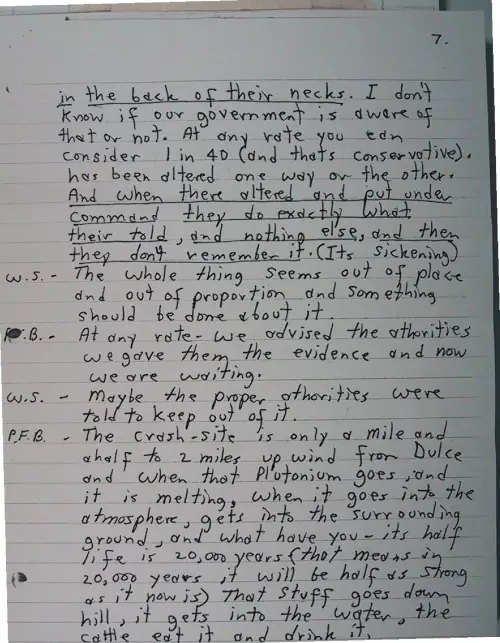 7.
in the back of their necks. I don't
know if our government is aware of
that or not. At any rate you can
consider 1 in 40 (and thats conservotive).
has been altered one way or the other.
And when there altered and put under
command they do exactly what
their told, and nothing else, and then
they don't remember it. (Its sickening)
W.S. - The whole thing seems out of place
and out of proportion and something
should be done about it.
P.B. - At any rate - we advised the athorities
we gave them the evidence and now
we are waiting.
W.S. - Maybe the proper athorities were
told to keep out of it.
P.F.B. - The crash-site is only a mile and
ahalf to 2 miles up wind from Dulce
and when that Plutonium goes, and
it is melting, when it goes into the
atmosphere, gets into the surrounding
ground, and what have you - its half
life is 20,000 years (that means in
20,000 years it will be half as strong
as it now is) that stuff goes down
hill, it gets into the water, the
cattle eat it and drink it,